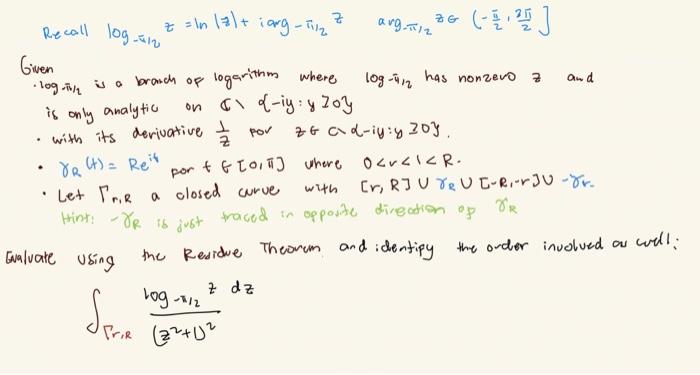 Recall log_{-π/2} z = ln |z| + i arg_{-π/2} z    arg_{-π/2} z ∈ (-π/2, 3π/2]
Given
· log_{-π/2} is a branch of logarithm where log_{-π/2} has nonzero z and
is only analytic on ℂ \ {-iy : y ≥ 0}
· with its derivative 1/z for z ∈ ℂ \ {-iy : y ≥ 0}.
· γ_R (t) = Re^{it} for t ∈ [0, π] where 0 < r < 1 < R.
· Let Γ_{r,R} a closed curve with [r, R] ∪ γ_R ∪ [-R, -r] ∪ -γ_r.
Hint: -γ_R is just traced in opposite direction of γ_R
Evaluate using the Residue Theorem and identify the order involved as well:
∫_{Γ_{r,R}} log_{-π/2} z dz / (z²+1)²